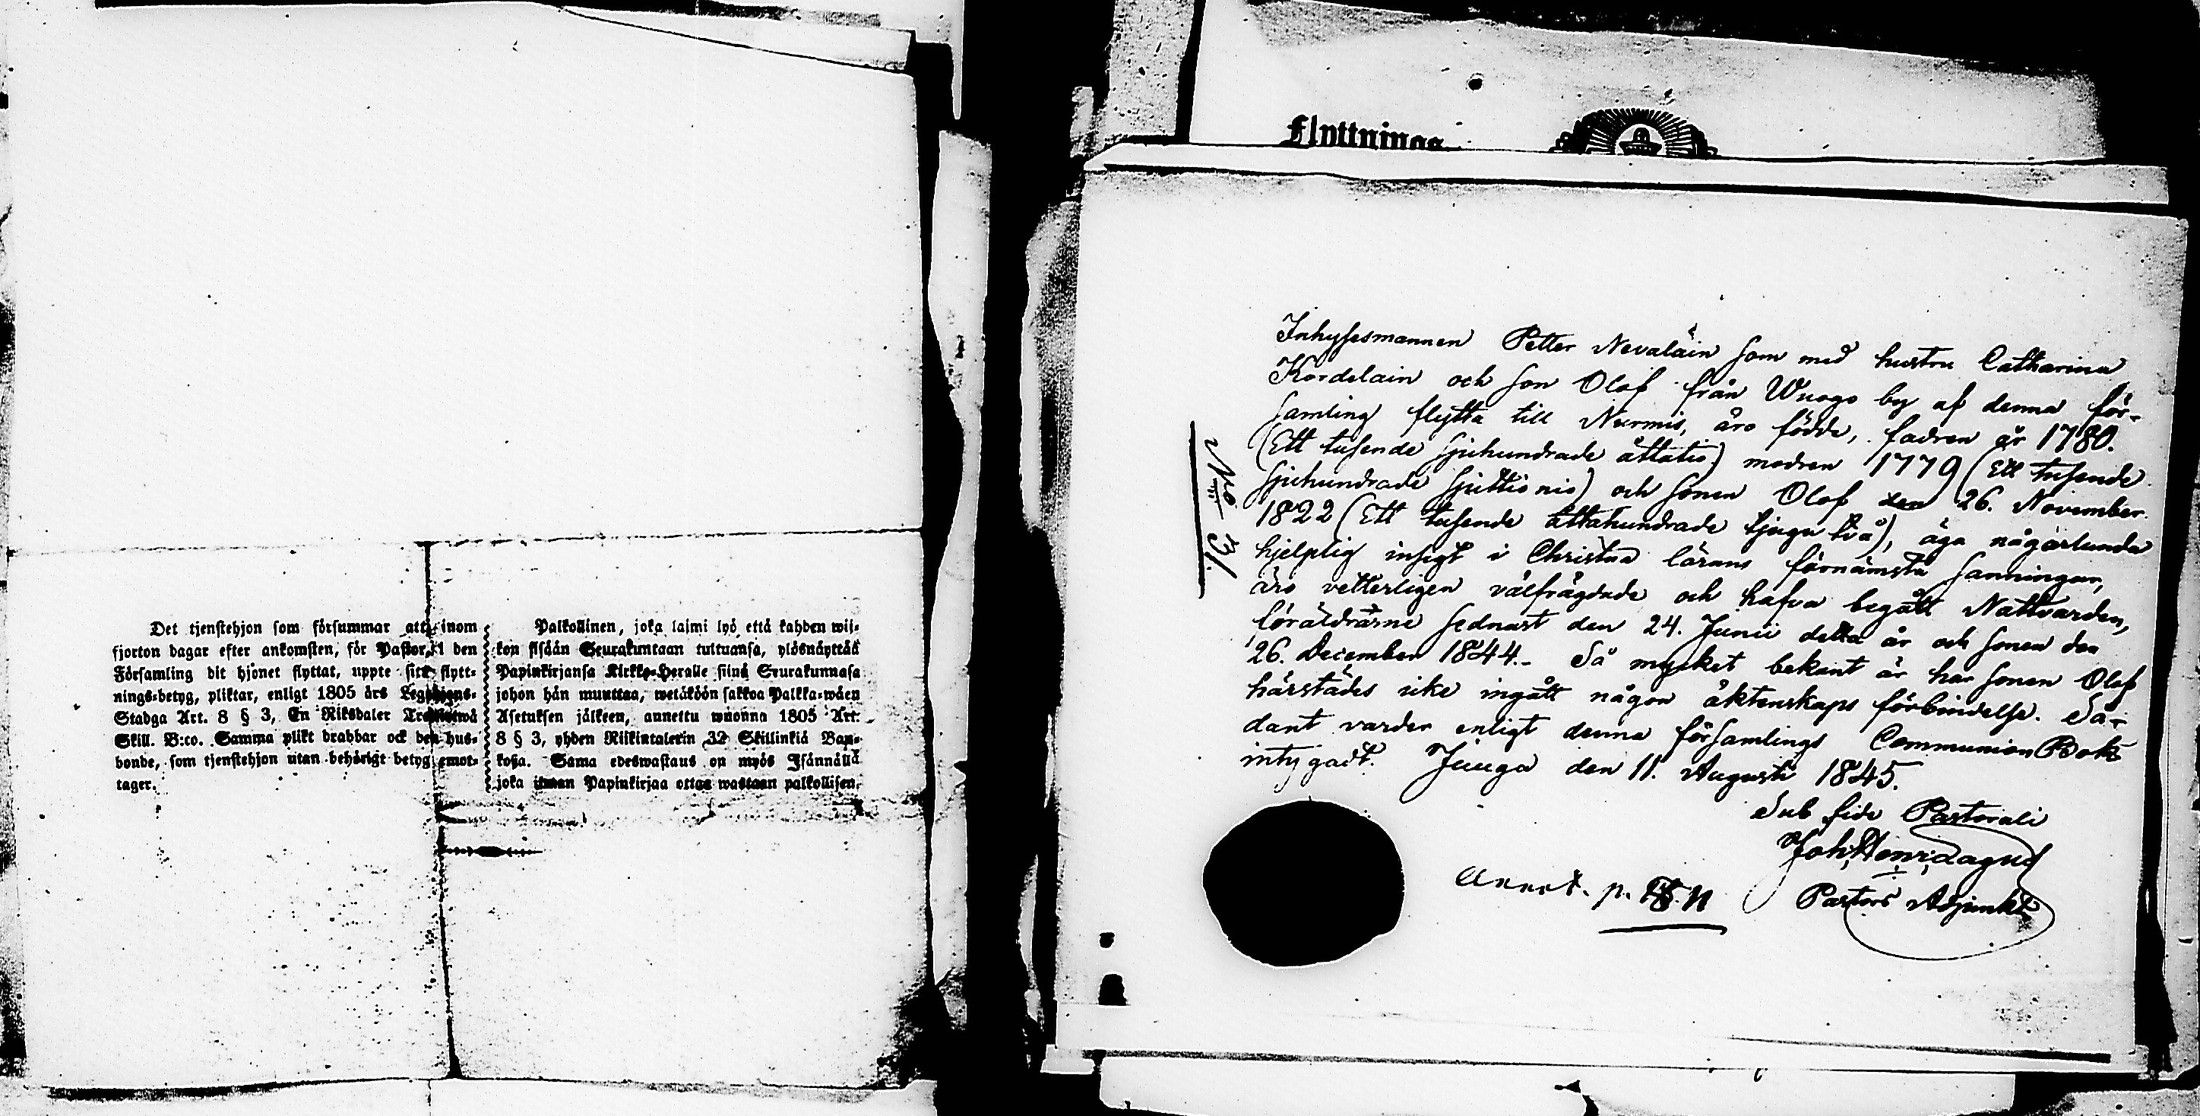 Det tjenstehjon som försummar att inom
fjorton dagar efter ankomsten, för Pastor i den
Församling dit hjonet flyttat, uppte sitt flytt-
nings-betyg, pliktar, enligt 1805 års Legohjons-
Stadga Art. 8 § 3, En Riksdaler Trettiotwå
Skill. B:co. Samma plikt drabbar ock den hus-
bonde, som tjenstehjon utan behörigt betyg emot-
tager.
Palkollinen, joka laimi lyö että kahden wii-
kon sisään Seurakuntaan tultuansa, ylösnäyttää
Papinkirjansa Kirkko-Herralle siinä Seurakunnasa
johon hän muuttaa, wetäköön sakkoa Palkka-wäen
Asetuksen jälkeen, annettu wuonna 1805 Art.
8 § 3, yhden Riikintalerin 32 Skillinkiä Ban-
kosa. Sama edeswastaus on myös Isännällä
joka ilman Papinkirjaa ottaa wastaan palkollisen.
Flyttnings-
No 31.
Inhysesmannen Petter Nevalain som med hustru Catharina
Kordelain och son Olof från Wuogo by af denna för-
samling flytta till Nurmis, äro födde, fadren år 1780.
(Ett tusende sjuhundrade åttatio) modren 1779 (Ett tusende
sjuhundrade sjuttionio) och sonen Olof den 26. November
1822 (Ett tusende åttahundrade tjugu två), äga någorlunda
hjelplig insigt i Christna lärans förnämsta sanningar,
äro vetterligen välfrägdade och hafva begått Nattvarden,
föräldrarne sednast den 24. Junii detta år och sonen den
26. December 1844.- Så mycket bekant är har sonen Olof
härstädes icke ingått någon äktenskaps förbindelse. Så-
dant varder enligt denna församlings Communion Bok
intygadt. Juuga den 11. Augusti 1845.
Sub fide Pastorali
Joh. Henr.
Pastors Adjunkt
Annot. p.